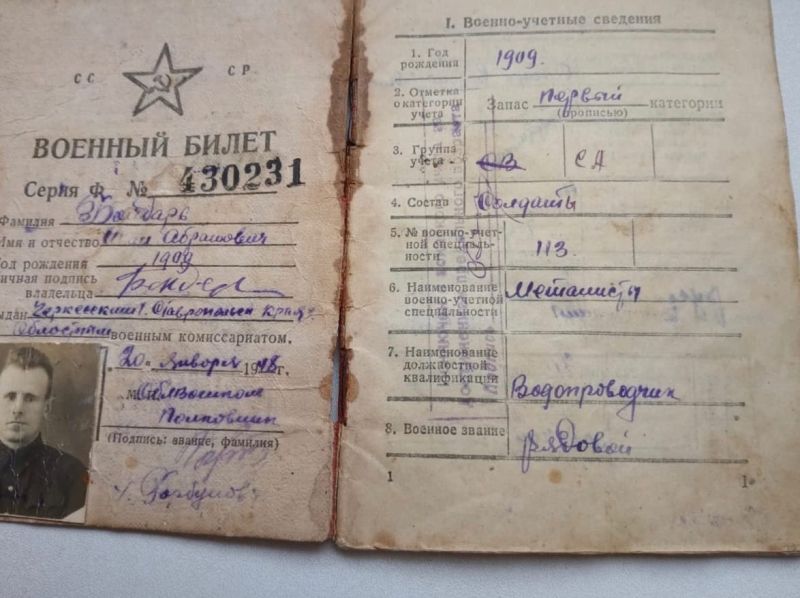 СС СР
ВОЕННЫЙ БИЛЕТ
Серия Ф № 430231
Фамилия
Имя и отчество Абрамович
Год рождения 1909
Личная подпись
владельца
Выдан Черкесским г. Ставропольск края
Областным военным комиссариатом.
20 января 1948 г.
М. П. Облвоенком
Полковник
(Подпись: звание, фамилия)
Горбунов
I. Военно-учетные сведения
1. Год
рождения 1909.
2. Отметка
о категории
учета Запас первый категории
(прописью)
3. Группа
учета СВ СА
4. Состав Солдаты
5. № военно-учет-
ной специаль-
ности 113
6. Наименование
военно-учетной
специальности Металисты
7. Наименование
должностной
квалификации Водопроводчик
8. Военное звание рядовой
1 1*